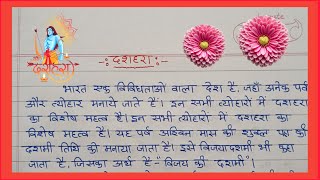 दशहरा
-: दशहरा :-
भारत एक विविधताओं वाला देश है, जहाँ अनेक पर्व
और त्योहार मनाये जाते हैं। इन सभी त्योहारों में दशहरा
का विशेष महत्व है। इन सभी त्योहारों में दशहरा का
विशेष महत्व है। यह पर्व अश्विन मास की शुक्ल पक्ष की
दशमी तिथि को मनाया जाता है। इसे विजयादशमी भी कहा
जाता है, जिसका अर्थ है-"विजय की दशमी"।